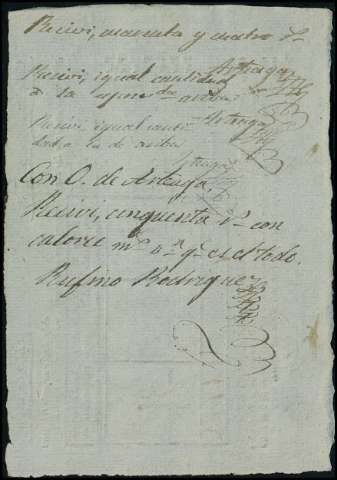 Recivi, quarenta y quatro r.s
Arteaga
Recivi, igual cantidad
a la espresada arriba
Arteaga
Recivi igual canti-
dad, a la de arriba
Arteaga
Con O. de Arteaga,
Recivi, cinquenta r.s con
catorce m.s v.n q.e es el todo.
Rufino Rodriguez